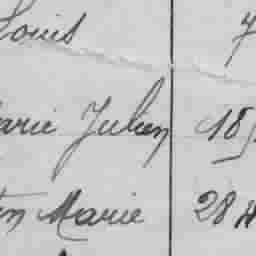 Louis 7
arie Julien 18
en Marie 28